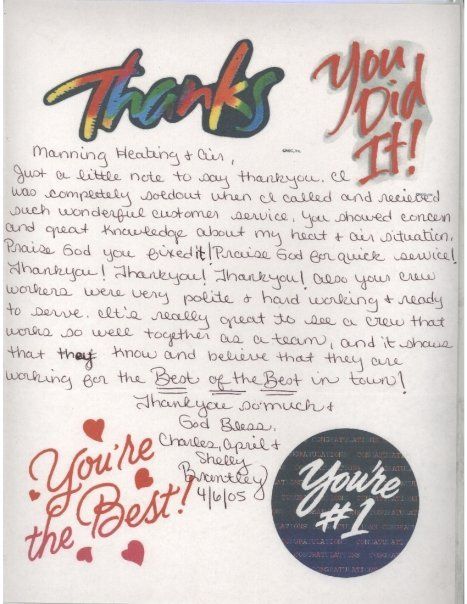 Thanks
You
Did
It!
Manning Heating & Air,
Just a little note to say thankyou. I
was completely soldout when I called and recieved
such wonderful customer service, you showed concern
and great knowledge about my heat & air situation.
Praise God you fixed it! Praise God for quick service!
Thankyou! Thankyou! Thankyou! Also your crew
workers were very polite & hard working & ready
to serve. It's really great to see a crew that
works so well together as a team, and it shows
that they know and believe that they are
working for the Best of the Best in town!
Thankyou so much &
God Bless,
Charles, April &
Shelly
Brantley
4/6/05
You're
the Best!
CONGRATULATIONS
You're
#1